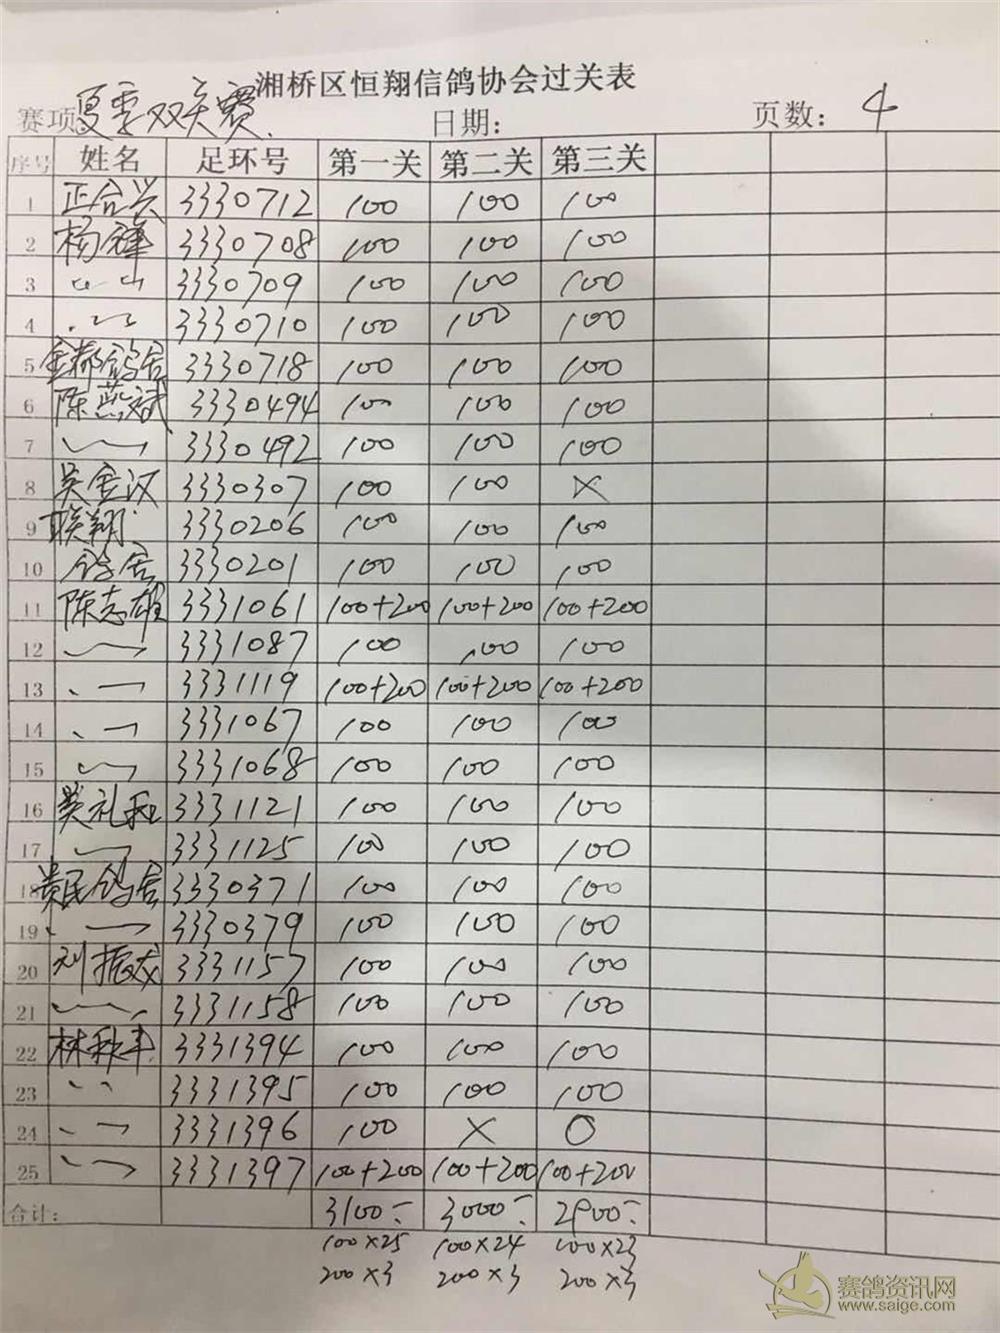 湘桥区恒翔信鸽协会过关表
赛项夏季双关赛. 日期: 页数: 4
序号 姓名 足环号 第一关 第二关 第三关
1 正合兴 3330712 100 100 100
2 杨锋 3330708 100 100 100
3 3330709 100 100 100
4 3330710 100 100 100
5 金都鸽舍 3330718 100 100 100
6 陈燕斌 3330494 100 100 100
7 3330492 100 100 100
8 吴金汉 3330307 100 100 ×
9 联翔 3330206 100 100 100
10 鸽舍 3330201 100 100 100
11 陈志雄 3331061 100+200 100+200 100+200
12 3331087 100 100 100
13 3331119 100+200 100+200 100+200
14 3331067 100 100 100
15 3331068 100 100 100
16 礼和 3331121 100 100 100
17 3331125 100 100 100
18 贵民鸽舍 3330371 100 100 100
19 3330379 100 100 100
20 刘振成 3331157 100 100 100
21 3331158 100 100 100
22 林秋丰 3331394 100 100 100
23 3331395 100 100 100
24 3331396 100 × 0
25 3331397 100+200 100+200 100+200
合计: 3100 3000 2900
100×25 100×24 100×23
200×3 200×3 200×3
赛鸽资讯网
www.saige.com